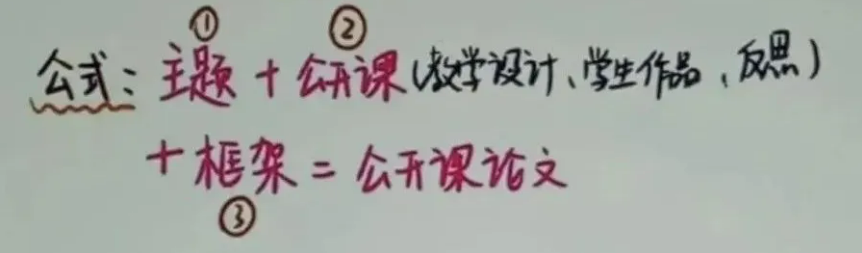 ① ②
公式：主题 + 公开课(教学设计、学生作品、反思)
+ 框架 = 公开课论文
③